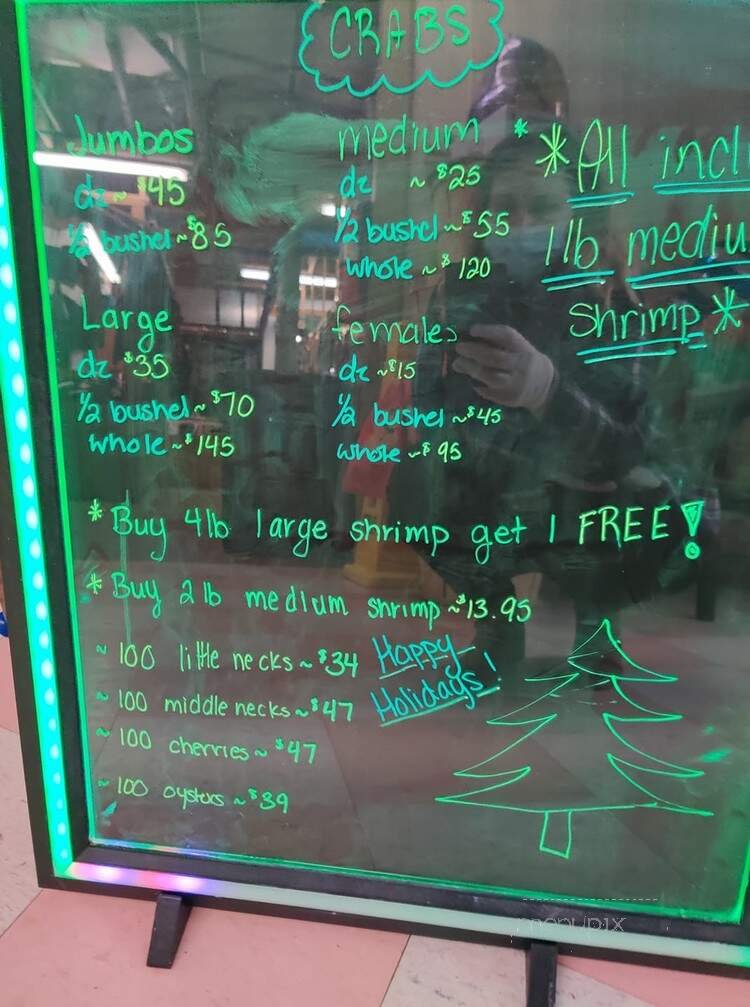 CRABS
Jumbos
dz ~ $45
1/2 bushel ~ $85
Large
dz $35
1/2 bushel ~ $70
whole ~ $145
medium *
dz ~ $25
1/2 bushel ~ $55
whole ~ $120
females
dz ~ $15
1/2 bushel ~ $45
whole ~ $95
*All incl
1 lb mediu
Shrimp*
* Buy 4lb large shrimp get 1 FREE!
* Buy 2 lb medium shrimp ~ $13.95
~ 100 little necks ~ $34
~ 100 middle necks ~ $47
~ 100 cherries ~ $47
~ 100 oysters ~ $39
Happy
Holidays!
menupix